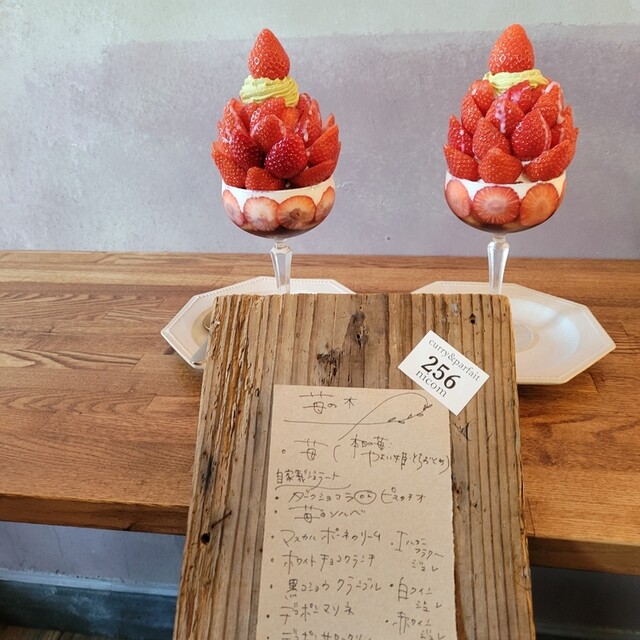 curry&parfait
256
nicom
苺の木
・苺(本日の苺
やよい姫 とちおとめ)
自家製ジェラート
・ダークショコラ or ピスタチオ
・苺のソルベ
・マスカルポーネクリーム
・エルダーフラワージュレ
・ホワイトチョコクランチ
・黒コショウクランブル
・白ワインジュレ
・デコポンマリネ
・赤ワインジュレ